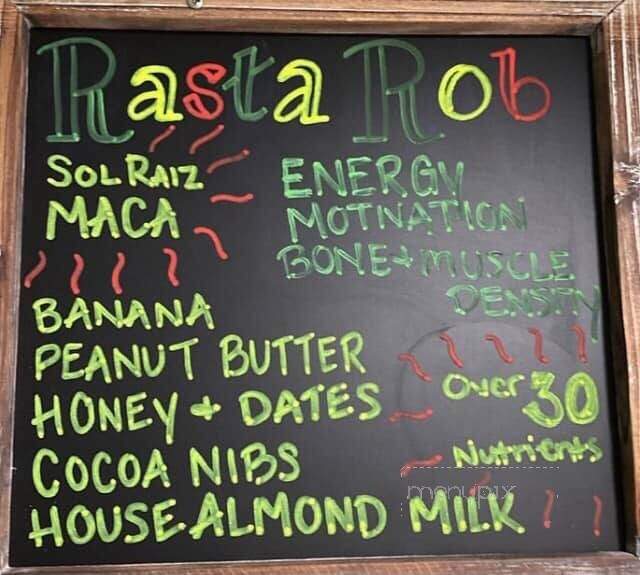 Rasta Rob
SOL RAIZ
MACA
ENERGY
MOTNATION
BONE + MUSCLE
DENSITY
BANANA
PEANUT BUTTER
HONEY + DATES
COCOA NIBS
HOUSE ALMOND MILK
Over 30
Nutrients
menupix